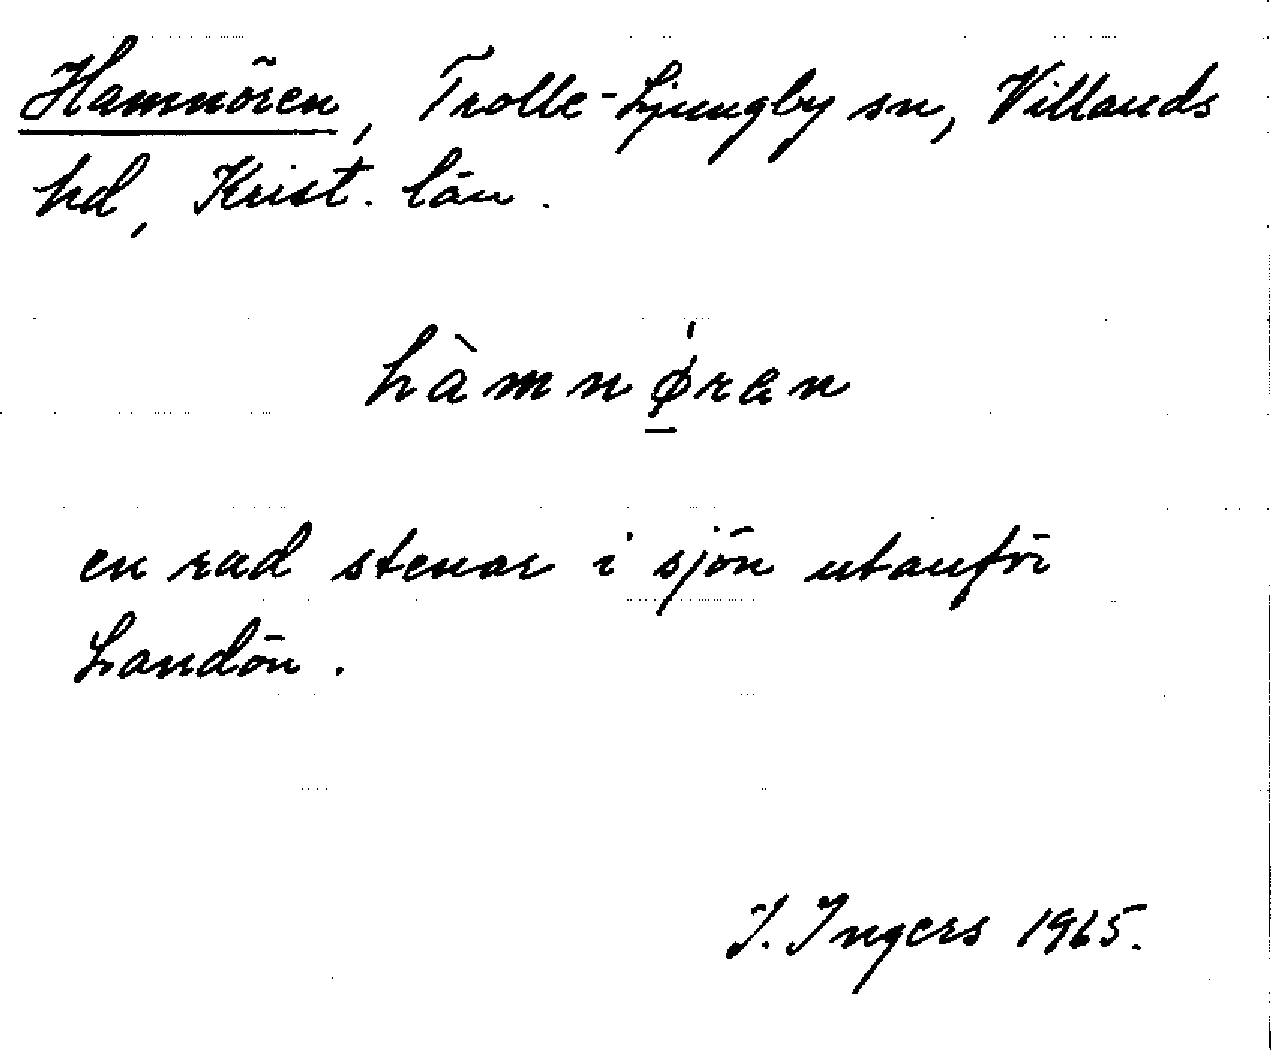 Hamnören, Trolle-Ljungby sn, Villands
hd, Krist. län.
hàmnø̱̍ran
en rad stenar i sjön utanför
Landön.
I. Ingers 1965.